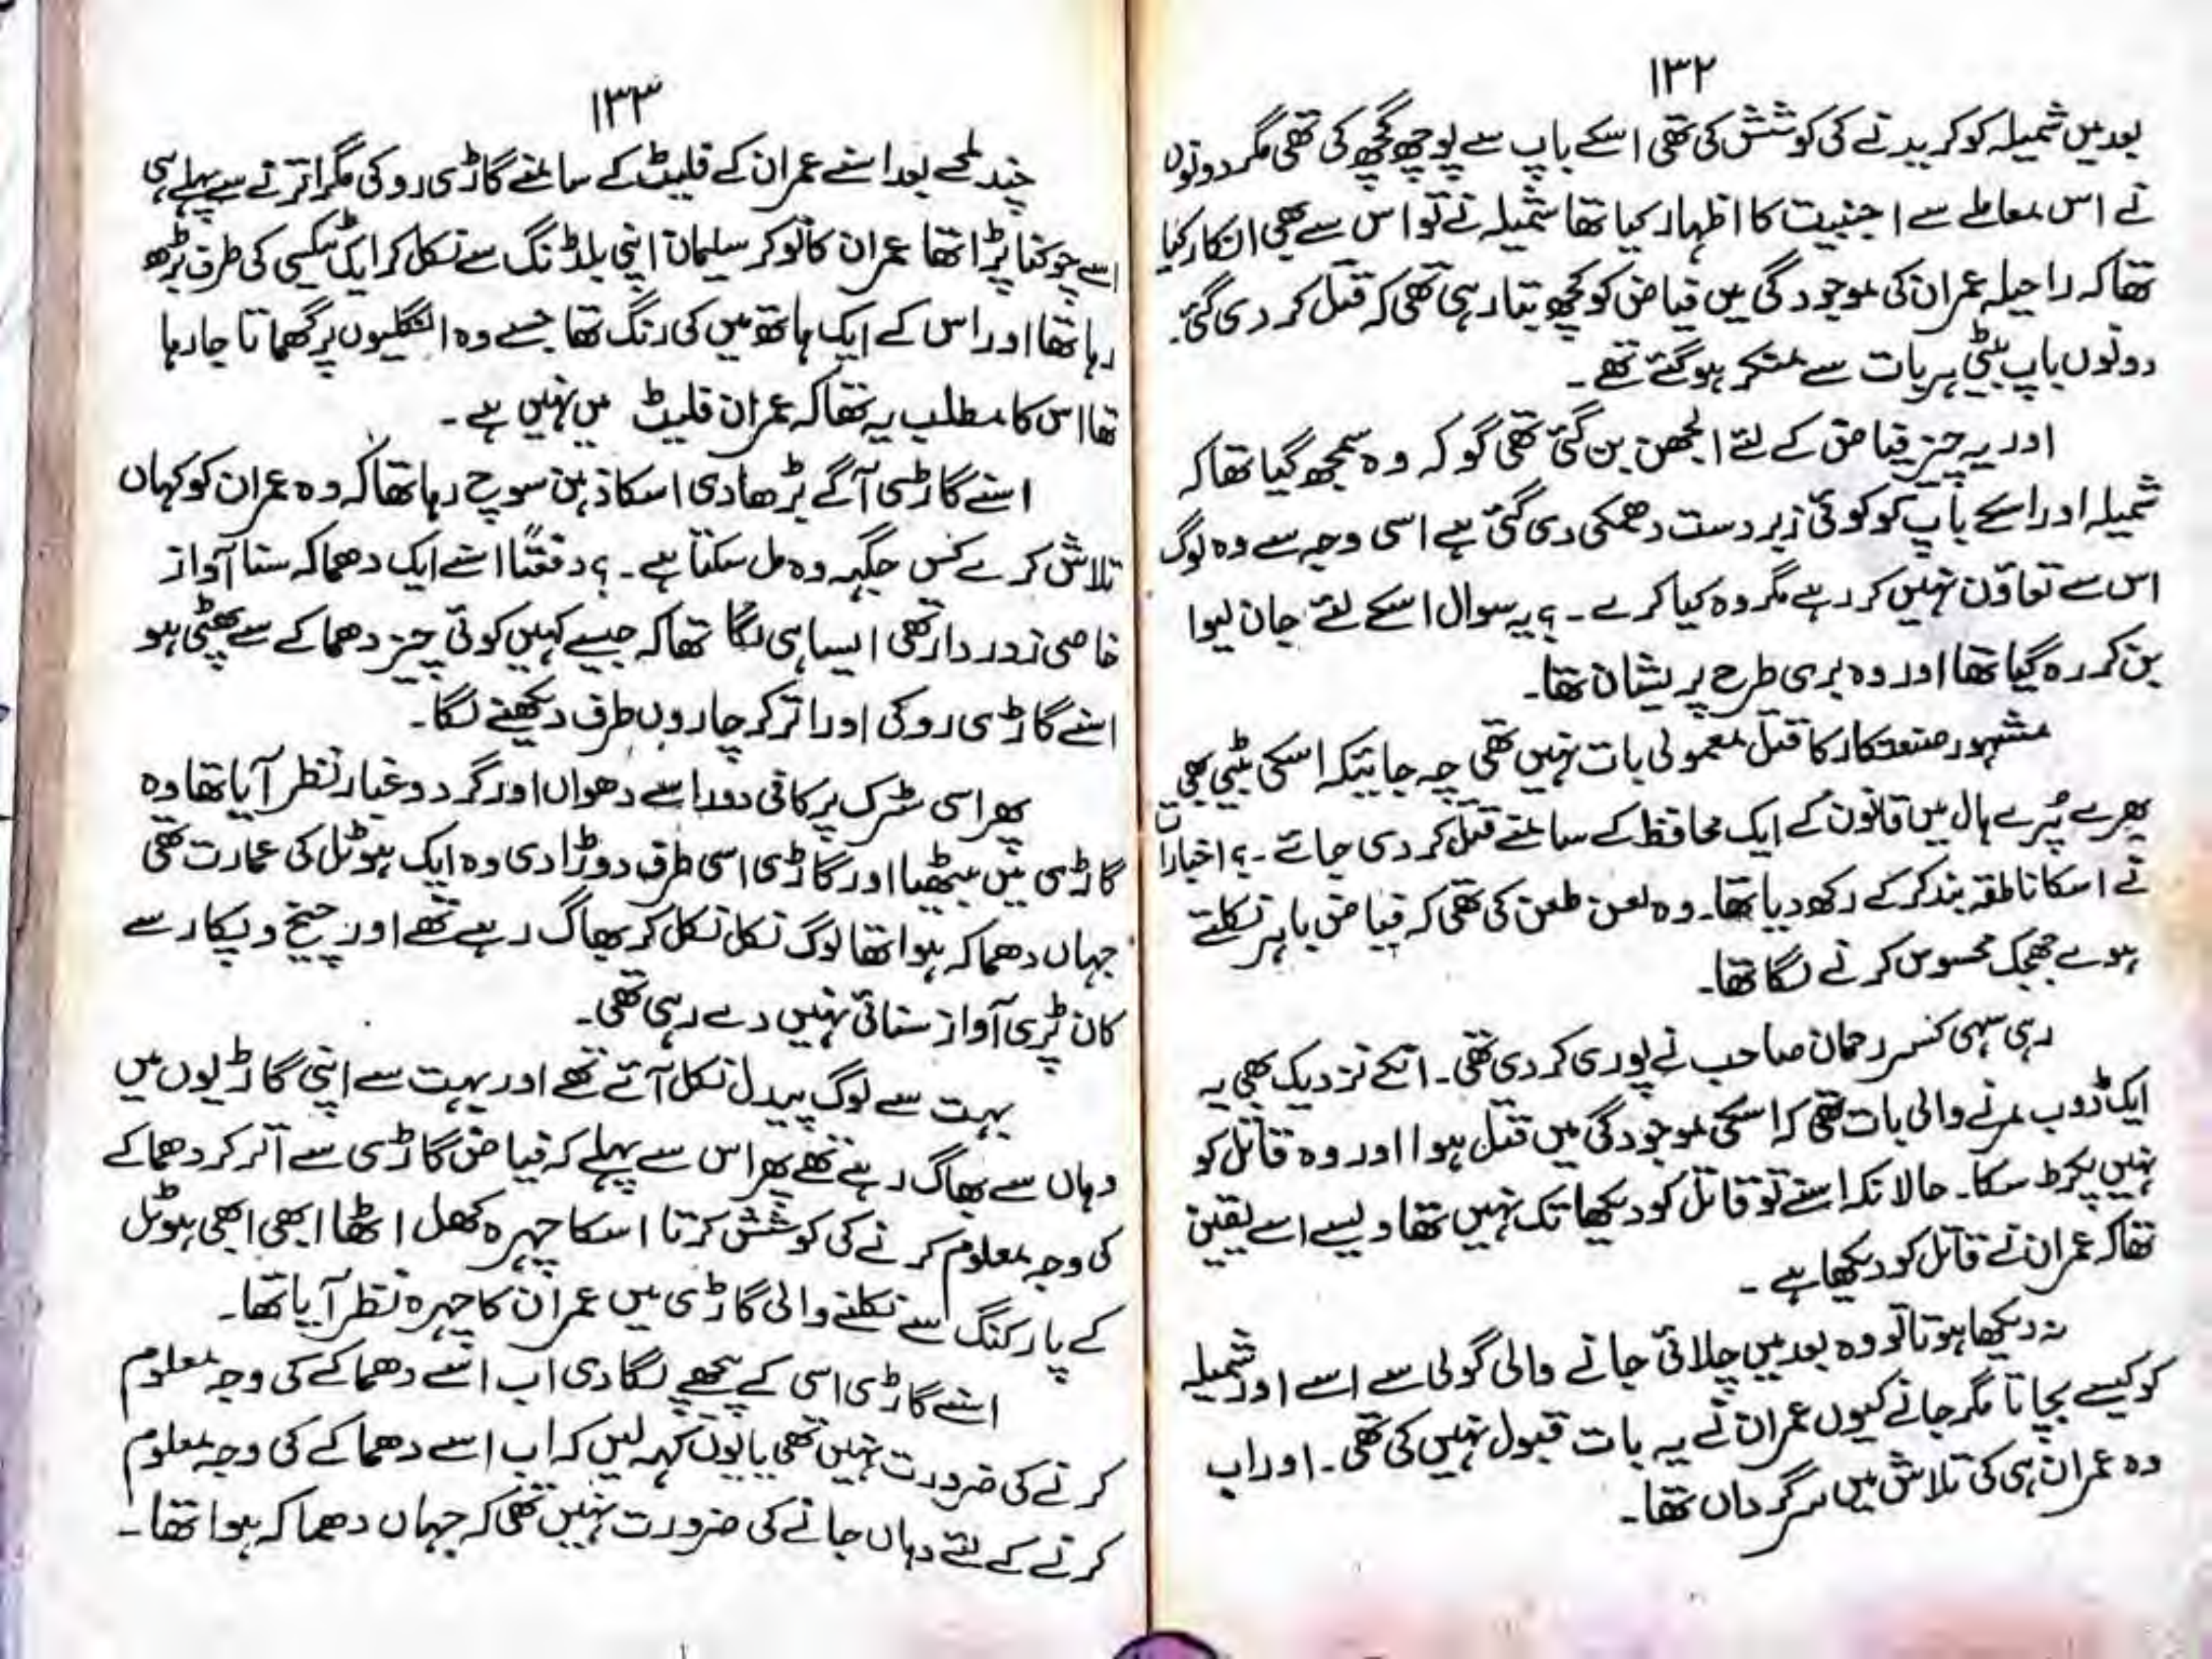 ۱۳۲
بعد میں شمیلہ کو کریدنے کی کوشش کی تھی اسکے باپ سے پوچھ گچھ کی تھی مگر دونوں
نے اس معاملے سے اجنبیت کا اظہار کیا تھا شمیلہ نے تو اس سے بھی انکار کیا
تھا کہ راحیلہ عمران کی موجودگی میں فیاض کو کچھ بتا رہی تھی کہ قتل کر دی گئی۔
دونوں باپ بیٹی ہر بات سے منکر ہو گئے تھے۔
اور یہ چیز فیاض کے لئے الجھن بن گئی تھی گو کہ وہ سمجھ گیا تھا کہ
شمیلہ اور اسکے باپ کو کوئی زبردست دھمکی دی گئی ہے اسی وجہ سے وہ لوگ
اس سے تعاون نہیں کر رہے مگر وہ کیا کرے۔؟ یہ سوال اسکے لئے جان لیوا
بن کر رہ گیا تھا اور وہ بری طرح پریشان تھا۔
مشہور صنعتکار کا قتل معمولی بات نہیں تھی چہ جائیکہ اسکی بیٹی بھی
بھرے پُرے ہال میں قانون کے ایک محافظ کے سامنے قتل کر دی جائے۔؟ اخبارات
نے اسکا ناطقہ بند کر کے رکھ دیا تھا۔ وہ لعن طعن کی تھی کہ فیاض باہر نکلتے
ہوے جھجک محسوس کرنے لگا تھا۔
رہی سہی کسر رحمان صاحب نے پوری کر دی تھی۔ انکے نزدیک بھی یہ
ایک ڈوب مرنے والی بات تھی کہ اسکی موجودگی میں قتل ہوا اور وہ قاتل کو
نہیں پکڑ سکا۔ حالانکہ اسنے تو قاتل کو دیکھا تک نہیں تھا ویسے اسے یقین
تھا کہ عمران نے قاتل کو دیکھا ہے۔
نہ دیکھا ہوتا تو وہ بعد میں چلائی جانے والی گولی سے اسے اور شمیلہ
کو کیسے بچاتا مگر جانے کیوں عمران نے یہ بات قبول نہیں کی تھی۔ اور اب
وہ عمران ہی کی تلاش میں سرگرداں تھا۔
۱۳۳
چند لمحے بعد اسنے عمران کے فلیٹ کے سامنے گاڑی روکی مگر اترنے سے پہلے ہی
اسے چونکنا پڑا تھا عمران کا نوکر سلیمان اپنی بلڈنگ سے نکل کر ایک ٹیکسی کی طرف بڑھ
رہا تھا اور اس کے ایک ہاتھ میں کی رنگ تھا جسے وہ انگلیوں پر گھماتا جا رہا
تھا اس کا مطلب یہ تھا کہ عمران فلیٹ میں نہیں ہے۔
اسنے گاڑی آگے بڑھا دی اسکا ذہن سوچ رہا تھا کہ وہ عمران کو کہاں
تلاش کرے کس جگہہ وہ مل سکتا ہے۔؟ دفعتاً اسنے ایک دھماکہ سنا آواز
خاصی زوردار تھی ایسا ہی لگا تھا کہ جیسے کہیں کوئی چیز دھماکے سے پھٹی ہو
اسنے گاڑی روکی اور اتر کر چاروں طرف دیکھنے لگا۔
پھر اسی سڑک پر کافی دور اسے دھواں اور گرد و غبار نظر آیا تھا وہ
گاڑی میں بیٹھا اور گاڑی اسی طرف دوڑا دی وہ ایک ہوٹل کی عمارت تھی
جہاں دھماکہ ہوا تھا لوگ نکل نکل کر بھاگ رہے تھے اور چیخ و پکار سے
کان پڑی آواز سنائی نہیں دے رہی تھی۔
بہت سے لوگ پیدل نکل آئے تھے اور بہت سے اپنی گاڑیوں میں
وہاں سے بھاگ رہے تھے پھر اس سے پہلے کہ فیاض گاڑی سے اتر کر دھماکے
کی وجہ معلوم کرنے کی کوشش کرتا اسکا چہرہ کھل اٹھا ابھی ابھی ہوٹل
کے پارکنگ سے نکلنے والی گاڑی میں عمران کا چہرہ نظر آیا تھا۔
اسنے گاڑی اسی کے پیچھے لگا دی اب اسے دھماکے کی وجہ معلوم
کرنے کی ضرورت نہیں تھی یا یوں کہہ لیں کہ اب اسے دھماکے کی وجہ معلوم
کرنے کے لئے وہاں جانے کی ضرورت نہیں تھی کہ جہاں دھماکہ ہوا تھا۔